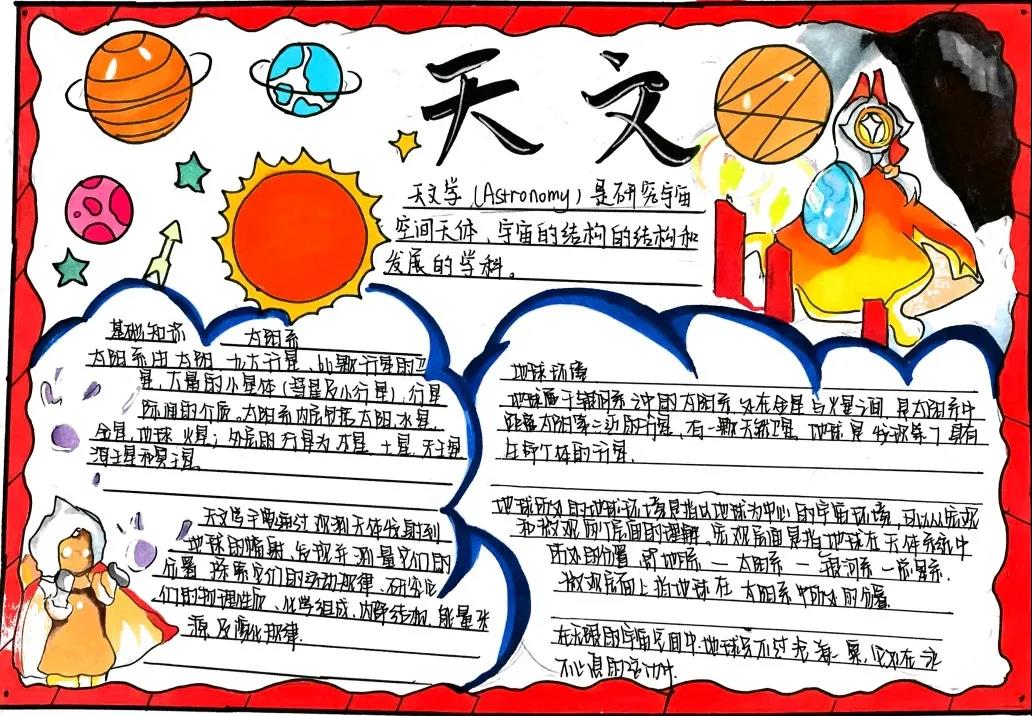 天文
天文学（Astronomy）是研究宇宙
空间天体、宇宙的结构的结构和
发展的学科。
基础知识 太阳系
太阳系由太阳、九大行星、66颗行星的卫
星、大量的小星体（彗星及小行星）、行星
际间的介质。太阳系内层包括太阳、水星、
金星、地球、火星；外层的行星为木星、土星、天王星
海王星和冥王星。
天文学于是通过观测天体发射到
地球的辐射，发现并测量它们的
位置、探索它们的运动规律、研究它
们的物理性质、化学组成、内部结构、能量来
源及演化规律.
地球环境
地球属于银河系之中的太阳系，处在金星与火星之间，是太阳系中
距离太阳第三近的行星，有一颗天然卫星。地球是
生命个体的行星.
地球所处的地球环境是指以地球为中心的宇宙环境，可以从宏观
和微观两个层面的理解，宏观层面是指地球在天体系统中
所处的位置，即地月系—太阳系—银河系—总星系.
微观层面上指地球在太阳系中所处的位置.
在无限的宇宙空间中，地球只不过沧海一粟，但如在永
不停息的运动中.